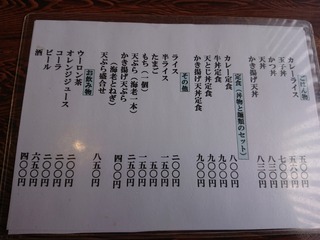 ごはん物
カレーライス
玉子丼
かつ丼 七〇〇
天丼 八三〇
かき揚げ天丼 八三〇
定食（丼物と麺類のセット）
カレー定食 八〇〇
牛丼定食 九〇〇
天とじ丼定食 九〇〇
かき揚げ天丼定食 九〇〇
その他
ライス 二〇〇
半ライス 一五〇
たまご
もち（一個） 一五〇
天ぷら（海老一本） 二五〇
かき揚げ天ぷら 四〇〇
天ぷら（海老とねぎ）
天ぷら盛合せ 八五〇
お飲み物
ウーロン茶 二〇〇
オレンジジュース 二〇〇
コーラ 二〇〇
ビール 六五〇
酒 四〇〇